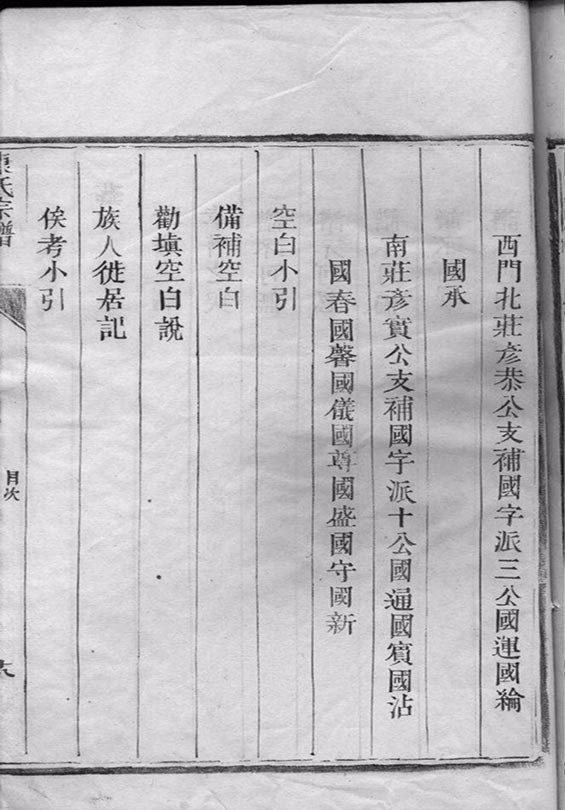 西門北莊彥恭公支補國字派三公國運國綸
國承
南莊彥實公支補國字派十公國通國賓國沾
國春國馨國儀國尊國盛國守國新
空白小引
備補空白
勸填空白說
族人徙居記
俟考小引
氏宗譜
目次